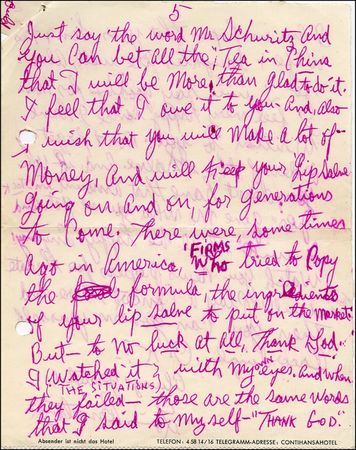 5
Just say the word Mr Schuritz And
You Can bet All the "Tea in China
that I will be More than glad to do it.
I feel that I owe it to you And, Also
I wish that you will Make A lot of
Money, And will keep your Lip Salve
going on And on, for generations
to Come. There were some times
Ago in America, "FIRMS
Who tried to Copy
the formula, the ingredients
of your lip salve to put on the Market.
But – to No luck at All, Thank God..
I (Watched it) with my OWN eyes. And when
THE SITUATIONS,
they failed – those are the same words
that I said to myself – "THANK GOD."
Absender ist nicht das Hotel
TELEFON: 4 58 14/16 TELEGRAMM-ADRESSE: CONTIHANSAHOTEL